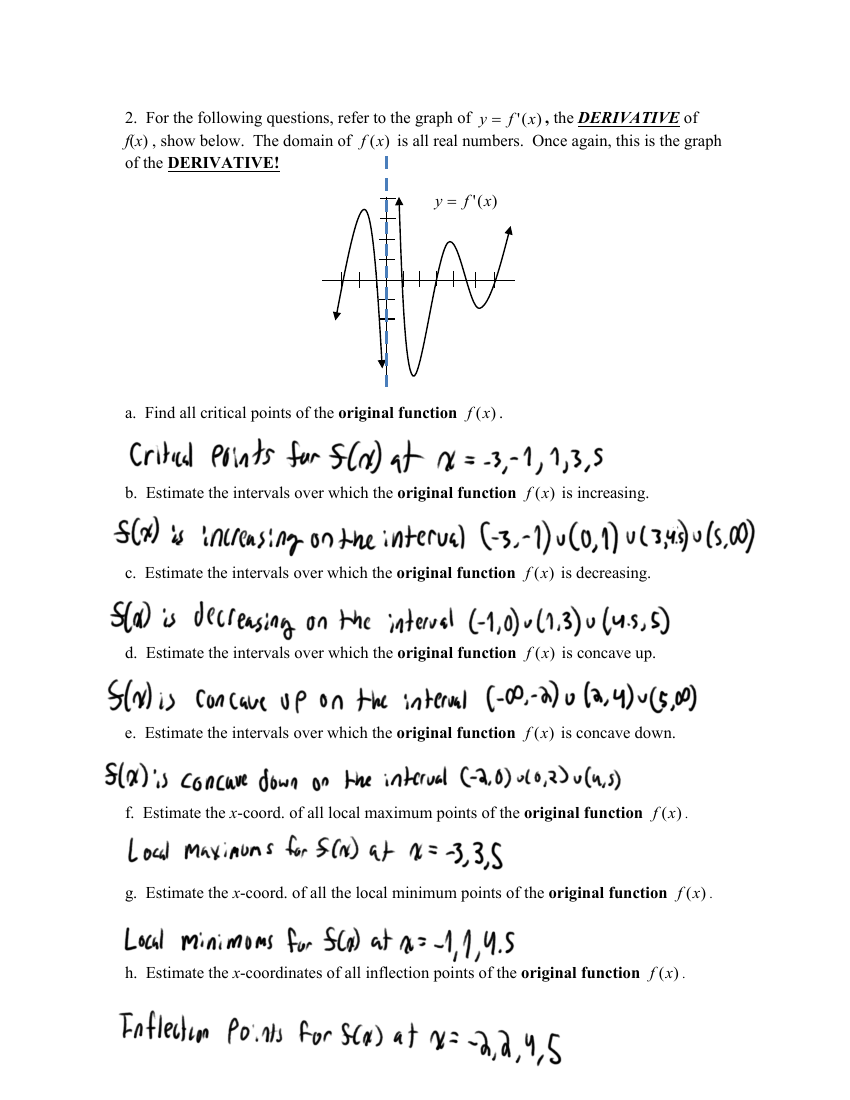 2. For the following questions, refer to the graph of y = f'(x), the DERIVATIVE of
f(x), show below. The domain of f(x) is all real numbers. Once again, this is the graph
of the DERIVATIVE!
y = f'(x)
a. Find all critical points of the original function f(x).
Critical Points for f(x) at x = -3,-1,1,3,5
b. Estimate the intervals over which the original function f(x) is increasing.
f(x) is increasing on the interval (-3,-1)∪(0,1)∪(3,4.5)∪(5,∞)
c. Estimate the intervals over which the original function f(x) is decreasing.
f(x) is decreasing on the interval (-1,0)∪(1,3)∪(4.5,5)
d. Estimate the intervals over which the original function f(x) is concave up.
f(x) is concave up on the interval (-∞,-2)∪(2,4)∪(5,∞)
e. Estimate the intervals over which the original function f(x) is concave down.
f(x) is concave down on the interval (-2,0)∪(0,2)∪(4,5)
f. Estimate the x-coord. of all local maximum points of the original function f(x).
Local maximums for f(x) at x = -3,3,5
g. Estimate the x-coord. of all the local minimum points of the original function f(x).
Local minimoms for f(x) at x = -1,1,4.5
h. Estimate the x-coordinates of all inflection points of the original function f(x).
Inflection Points for f(x) at x = -2,2,4,5